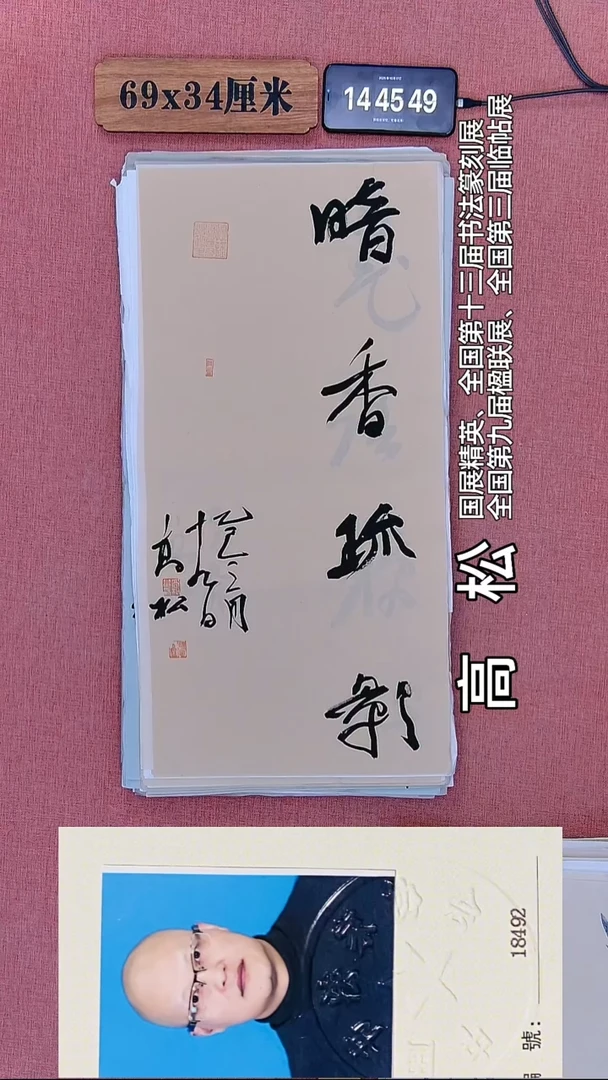 69x34厘米
14 45 49
暗香疏影
乙巳二月
十九日
高松
国展精英、全国第十三届书法篆刻展
全国第九届楹联展、全国第三届临帖展
高 松
18492
號: